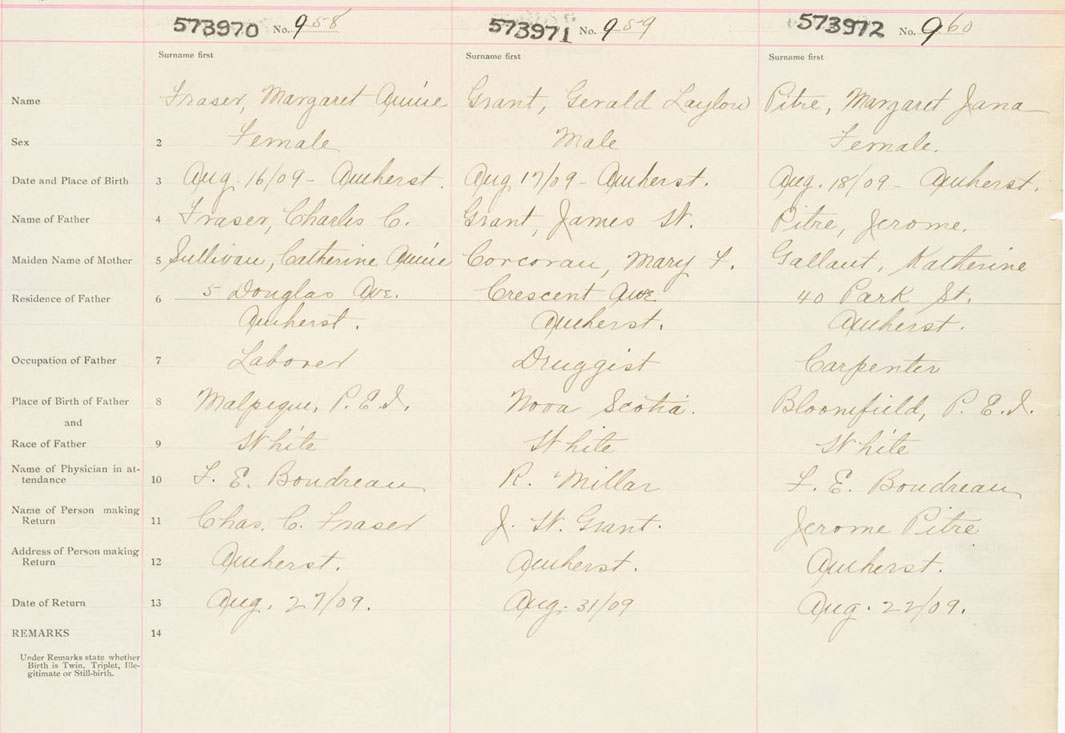 573970 No. 958 573971 No. 959 573972 No. 960
Surname first Surname first Surname first
Name Fraser, Margaret Annie Grant, Gerald Laylow Pitre, Margaret Jana
Sex 2 Female Male Female.
Date and Place of Birth 3 Aug. 16/09 - Amherst. Aug 17/09 - Amherst. Aug. 18/09 - Amherst.
Name of Father 4 Fraser, Charles C. Grant, James W. Pitre, Jerome.
Maiden Name of Mother 5 Sullivan, Catherine Annie Corcoran, Mary F. Gallant, Katherine
Residence of Father 6 5 Douglas Ave. Crescent Ave 40 Park St.
Amherst. Amherst. Amherst.
Occupation of Father 7 Laborer Druggist Carpenter
Place of Birth of Father 8 Malpeque, P.E.I. Nova Scotia. Bloomfield, P.E.I.
and
Race of Father 9 White White White
Name of Physician in at-
tendance 10 F. E. Boudreau R. Millar F. E. Boudreau
Name of Person making
Return 11 Chas. C. Fraser J. W. Grant. Jerome Pitre
Address of Person making
Return 12 Amherst. Amherst. Amherst.
Date of Return 13 Aug. 27/09. Aug. 31/09 Aug. 22/09.
REMARKS 14
Under Remarks state whether
Birth is Twin, Triplet, Ille-
gitimate or Still-birth.